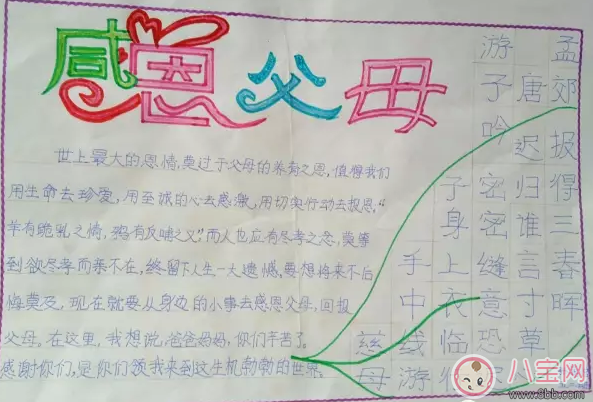 感恩父母
世上最大的恩情,莫过于父母的养育之恩,值得我们
用生命去珍爱,用至诚的心去感激,用切实行动去报恩."
羊有跪乳之情,鸦有反哺之义"而人也应有尽孝之念,莫等
到欲尽孝而亲不在,终留下人生一大遗憾,要想将来不后
悔莫及,现在就要从身边的小事去感恩父母,回报
父母。在这里,我想说,爸爸妈妈,你们辛苦了。
感谢你们,是你们领我来到这生机勃勃的世界。
慈母
手中线游
子身上衣临行
游子吟 密密缝意恐
唐 迟归谁言寸草
孟郊 报得三春晖
八宝网
www.8bb.com